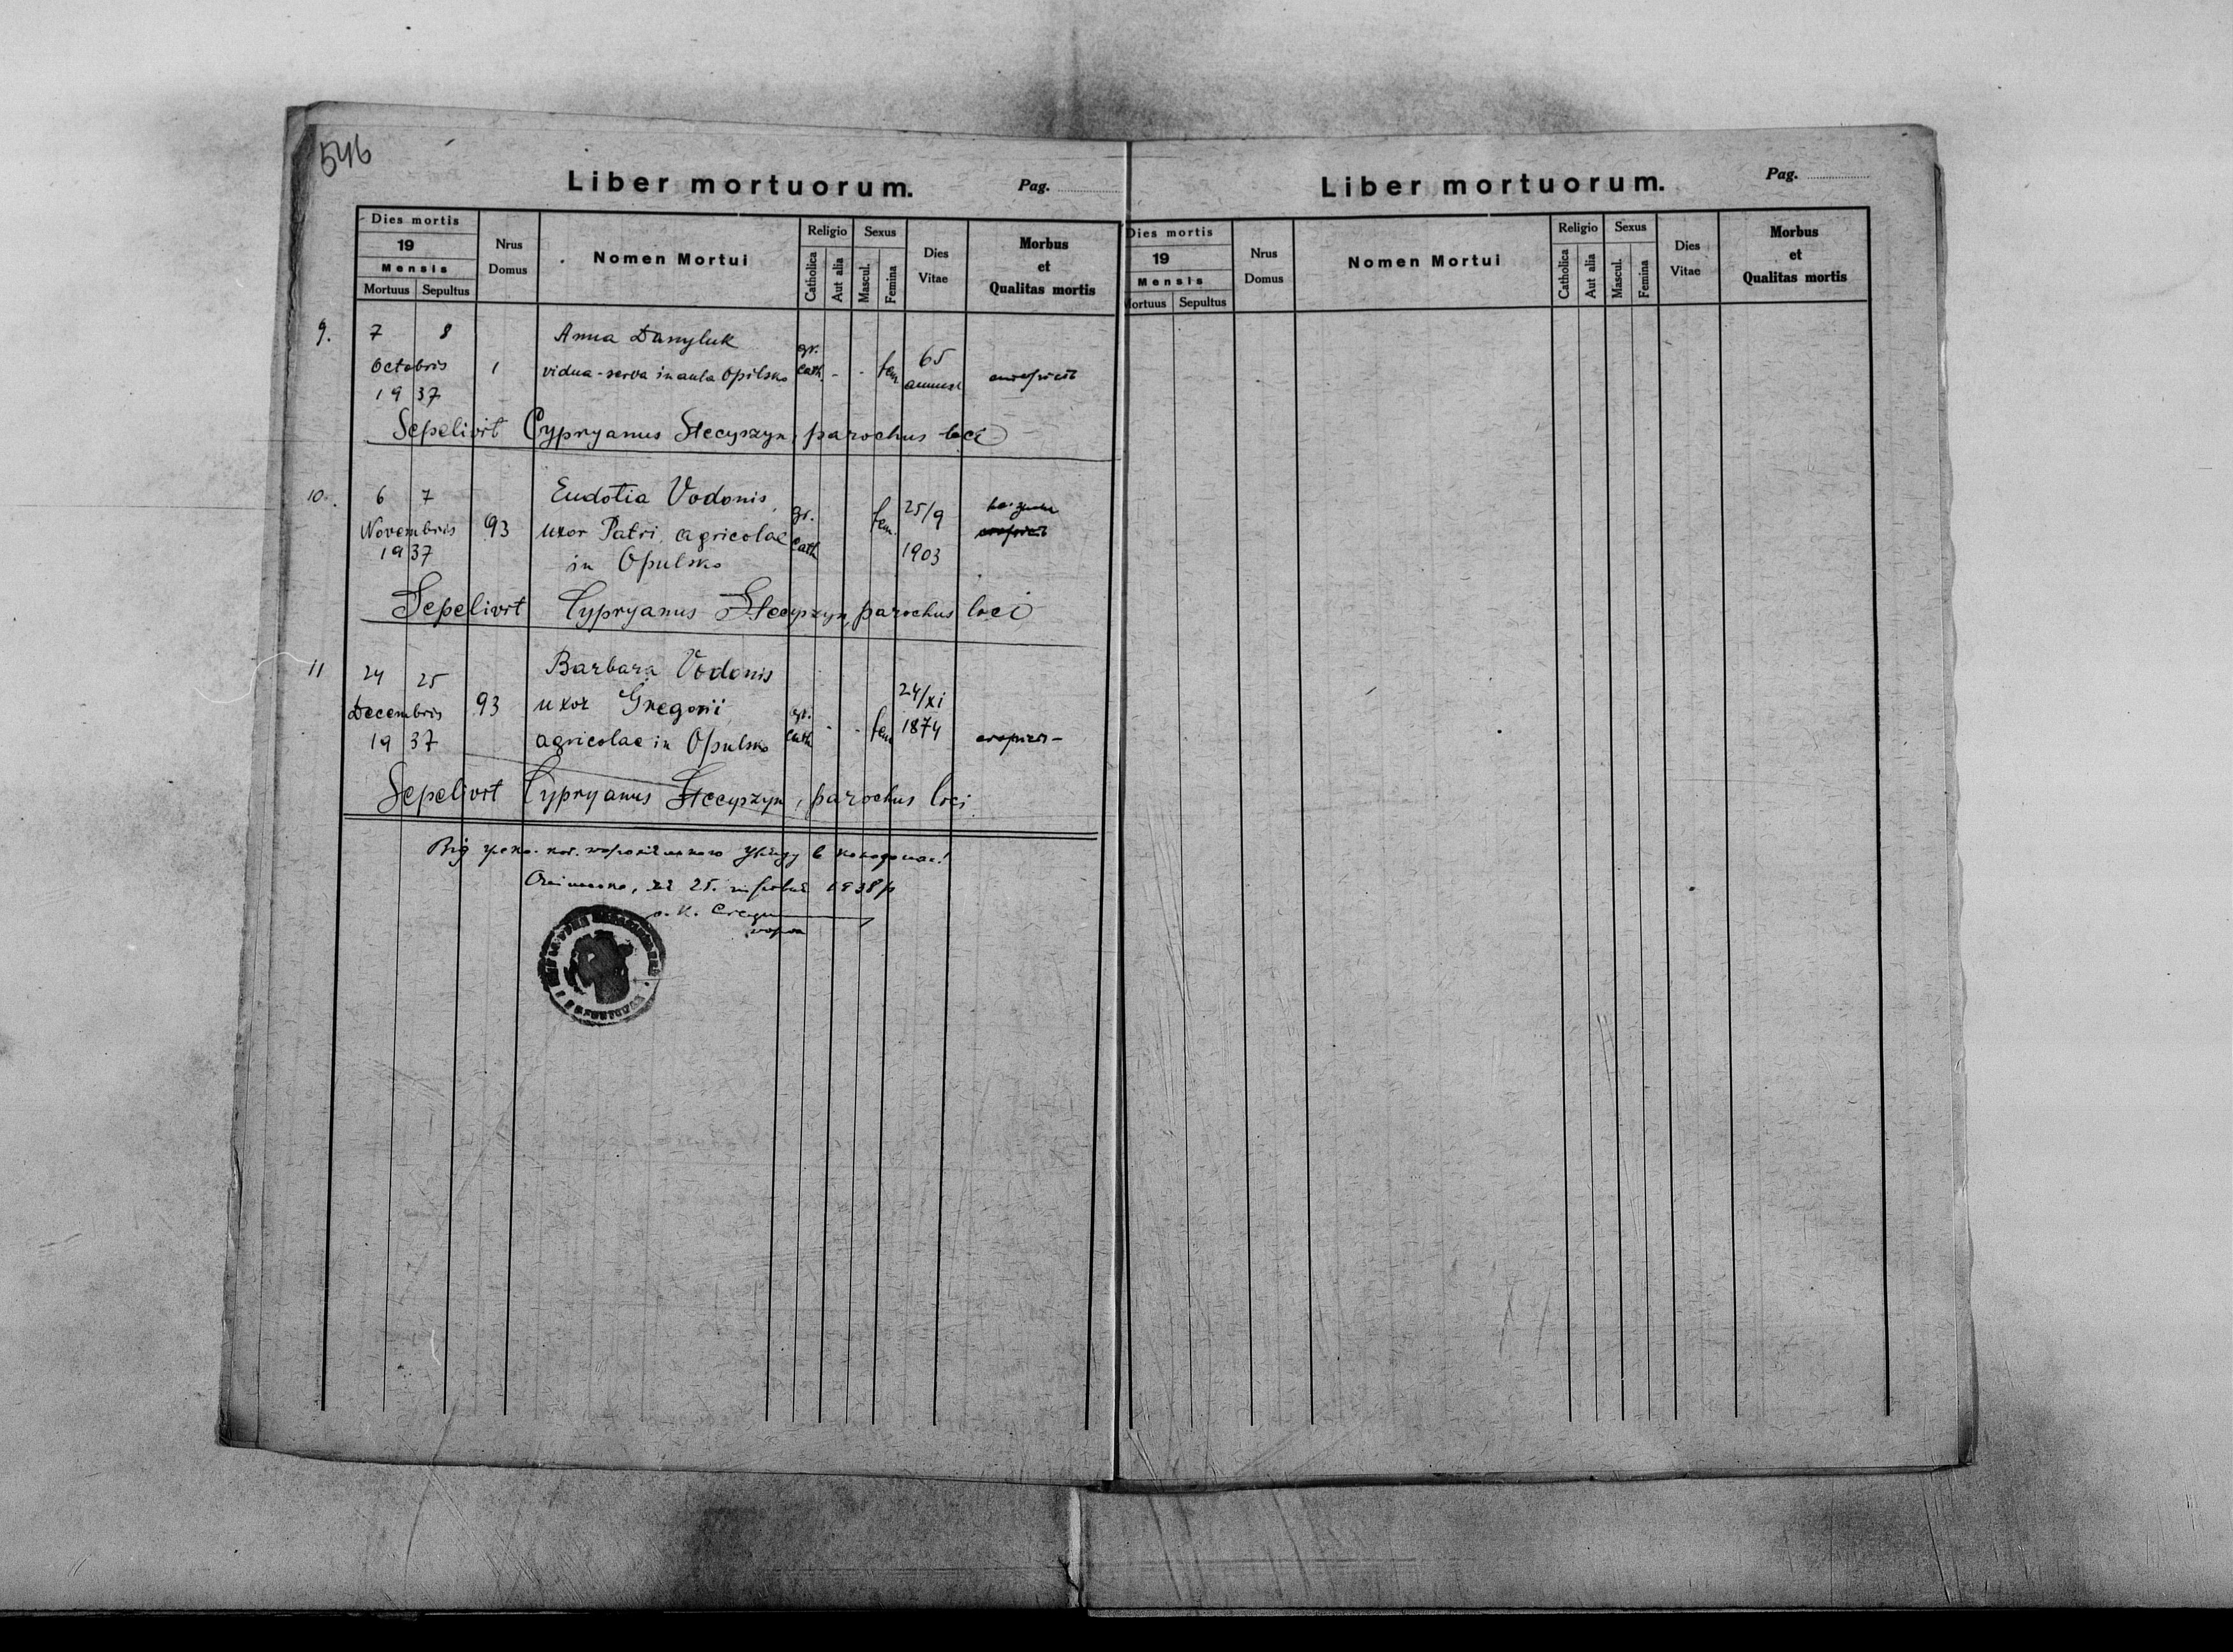 546
Liber mortuorum.
Pag.
Dies mortis
19
Mensis
Mortuus Sepultus
Nrus Domus
Nomen Mortui
Religio
Catholica
Aut alia
Sexus
Mascul.
Femina
Dies Vitae
Morbus et Qualitas mortis
9. 7 8 Anna Danyluk gr. 65
Octobris 1 vidua-serva in aula Opilsko cath. - - fem.
19 37
Sepelivit Cypryanus Stecyszyn, parochus loci
10. 6 7 Eudotia Vodonis, gr. fem. 25/9
Novembris 93 uxor Patri, agricolae cath.
19 37 in Opulsko 1903
Sepelivit Cypryanus Stecyszyn, parochus loci
11 24 25 Barbara Vodonis 24/xi
Decembris 93 uxor Gregorii gr. 1874
19 37 agricolae in Opulsko cath. - - fem.
Sepelivit Cypryanus Stecyszyn, parochus loci
Від греко-кат. парохіяльного Уряду в
25. 1938 р
Liber mortuorum.
Pag.
Dies mortis
19
Mensis
Mortuus Sepultus
Nrus Domus
Nomen Mortui
Religio
Catholica
Aut alia
Sexus
Mascul.
Femina
Dies Vitae
Morbus et Qualitas mortis